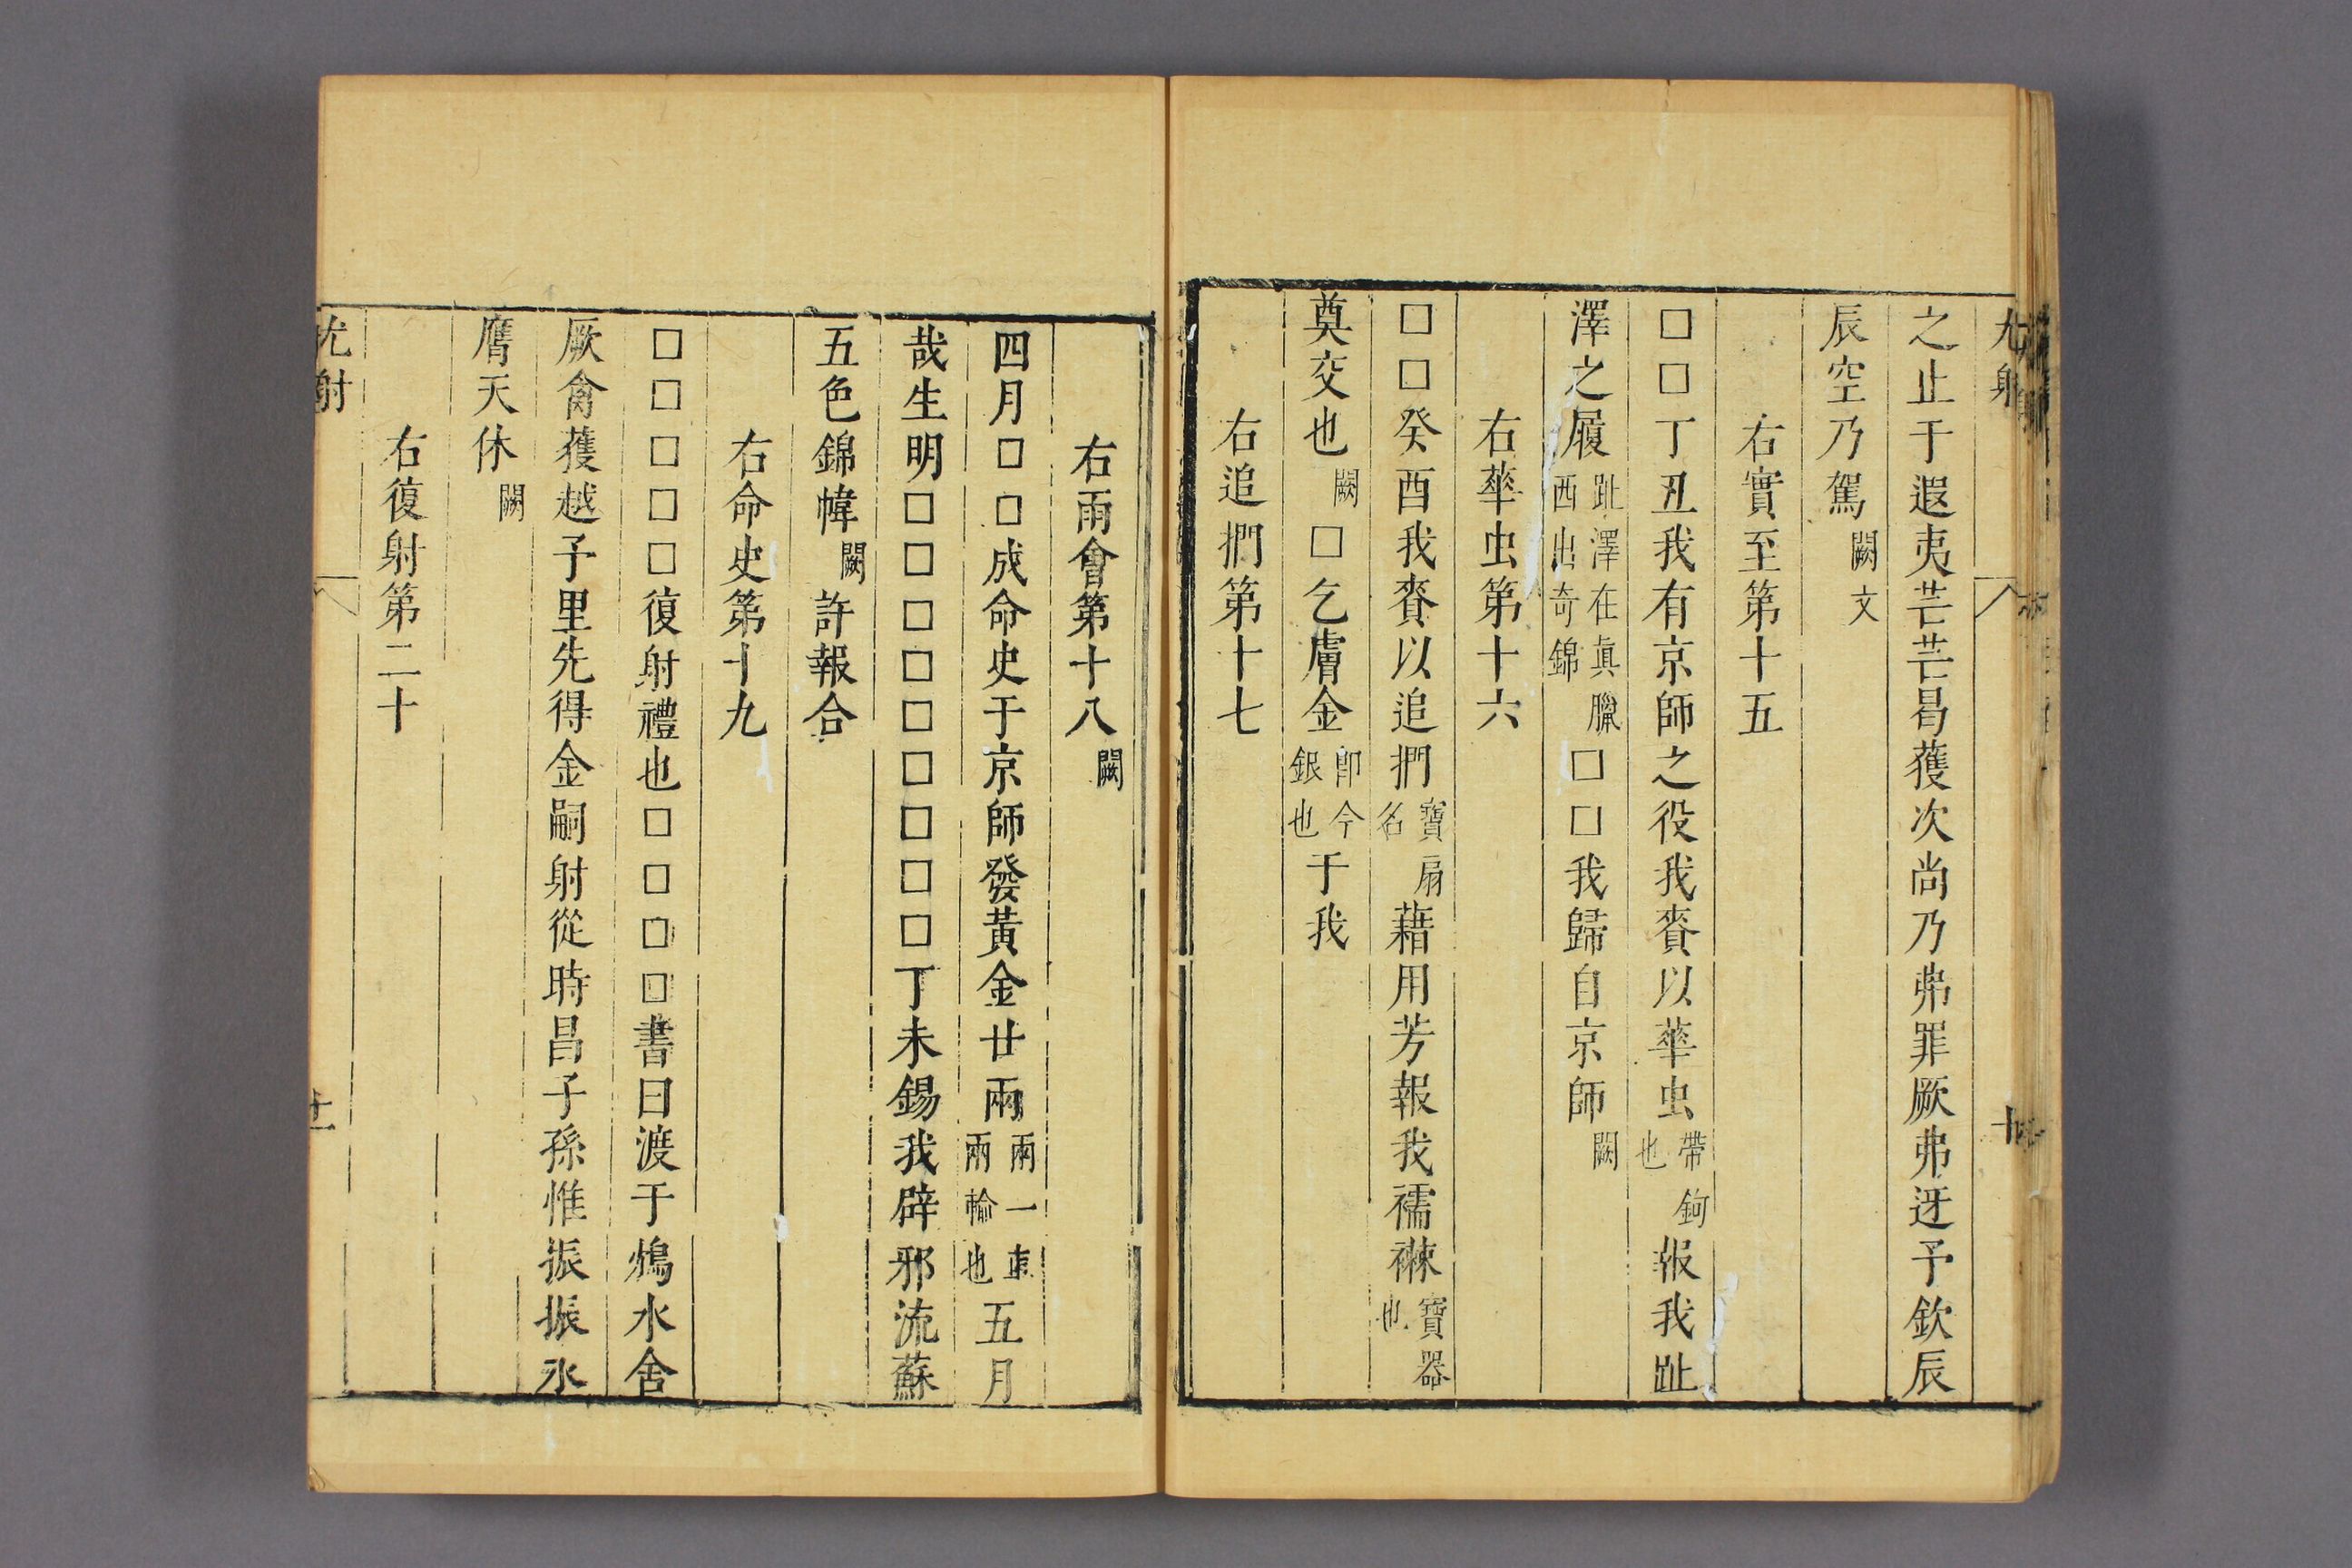 之止于遐夷芒芒曷獲次尚乃弗罪厥弗迓予欽辰
辰空乃駕闕文
右實至第十五
□□丁丑我有京師之役我賚以華虫帶鉤也報我趾
澤之履趾澤在眞臘西出奇錦□□我歸自京師闕
右華虫第十六
□□癸酉我賚以追捫寶扇名藉用芳報我襦襋寶器也
奠交也闕□乞膚金卽今銀也于我
右追捫第十七
右雨會第十八闕
四月□□成命史于京師發黃金廿兩兩一束兩輸也五月
哉生明□□□□□□□□□丁未錫我辟邪流蘇
五色錦幃闕許報合
右命史第十九
□□□□□復射禮也□□□□書曰渡于鴆水舍
厥禽獲越子里先得金嗣射從時昌子孫惟振振永
膺天休闕
右復射第二十
尤射